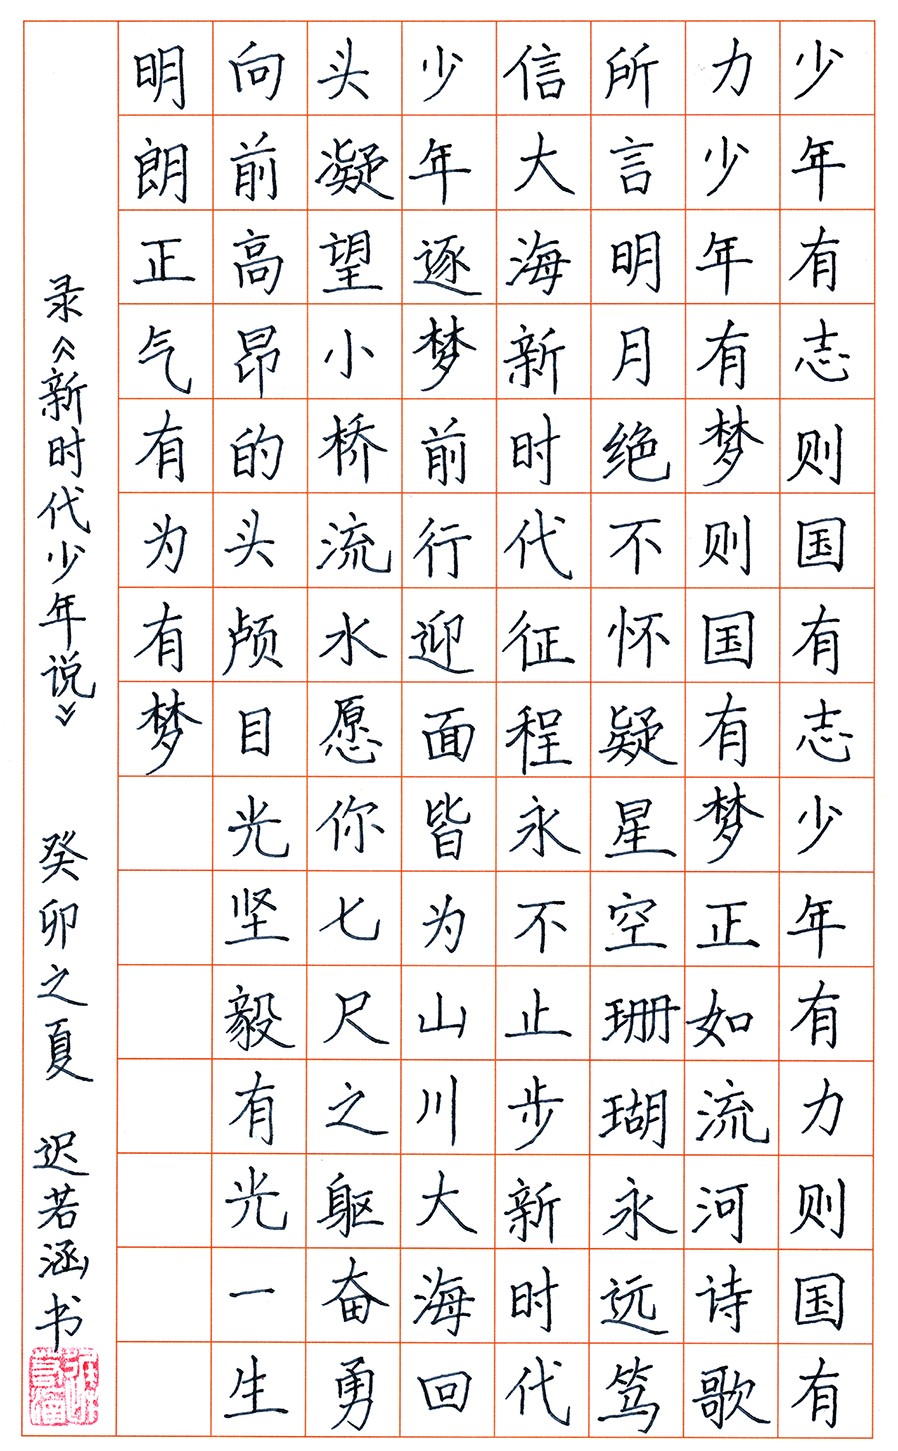 少年有志则国有志少年有力则国有
力少年有梦则国有梦正如流河诗歌
所言明月绝不怀疑星空珊瑚永远笃
信大海新时代征程永不止步新时代
少年逐梦前行迎面皆为山川大海回
头凝望小桥流水愿你七尺之躯奋勇
向前高昂的头颅目光坚毅有光一生
明朗正气有为有梦
录《新时代少年说》 癸卯之夏 迟若涵书